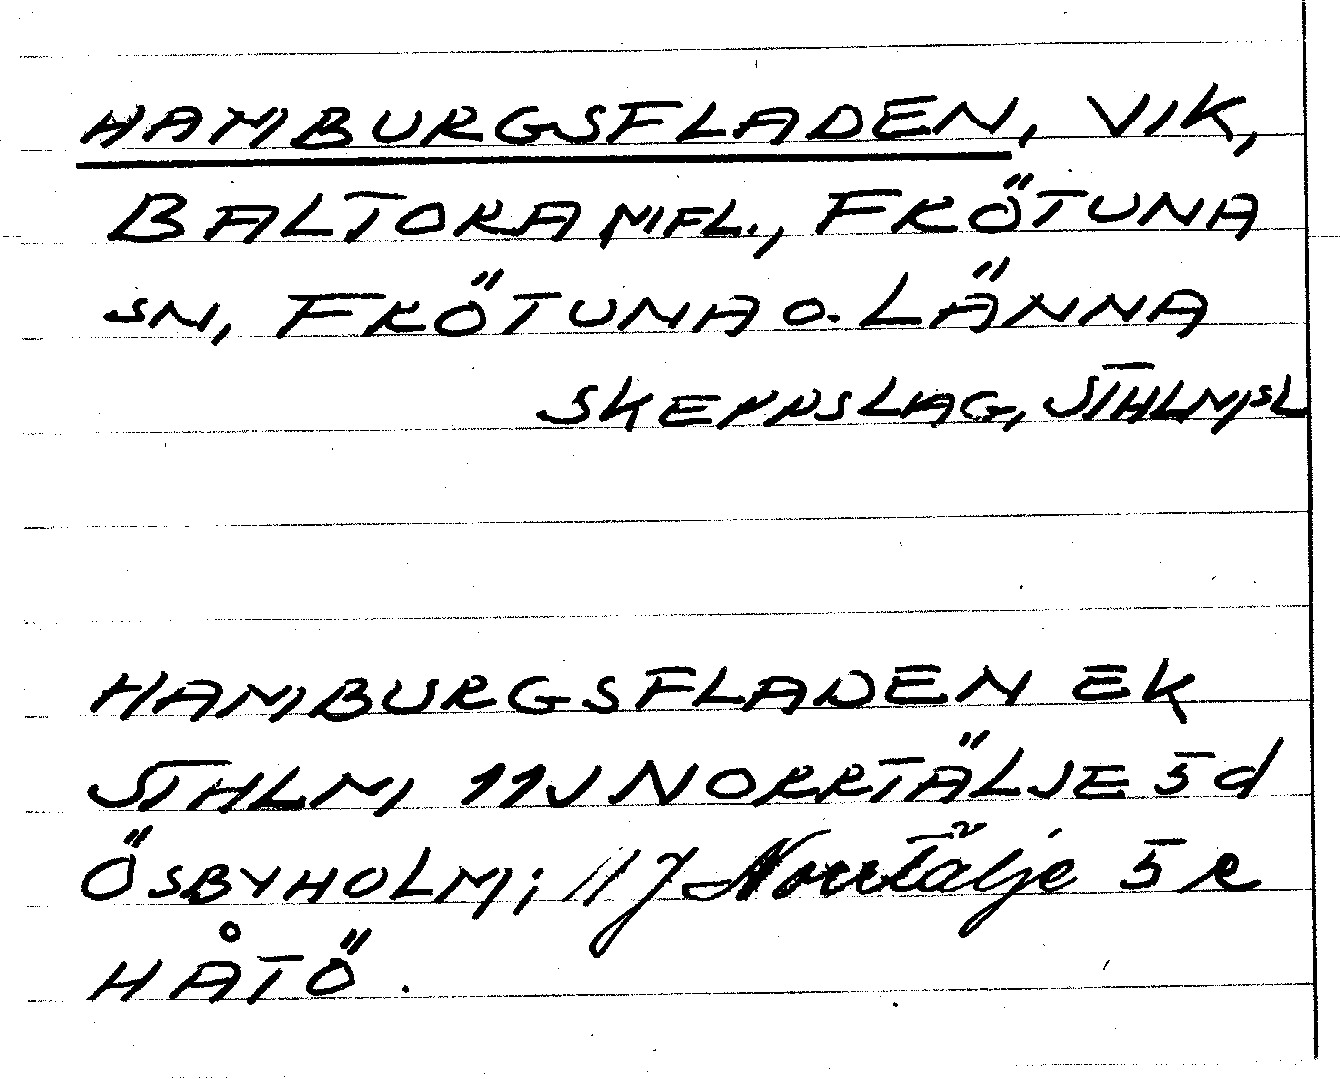 HAMBURGSFLADEN, VIK,
BALTORA MFL., FRÖTUNA
SN, FRÖTUNA O. LÄNNA
SKEPPSLAG, STHLMSL
HAMBURGSFLADEN EK
STHLM 11J NORRTÄLJE 5d
ÖSBYHOLM; 11J Norrtälje 5 e
HÅTÖ.